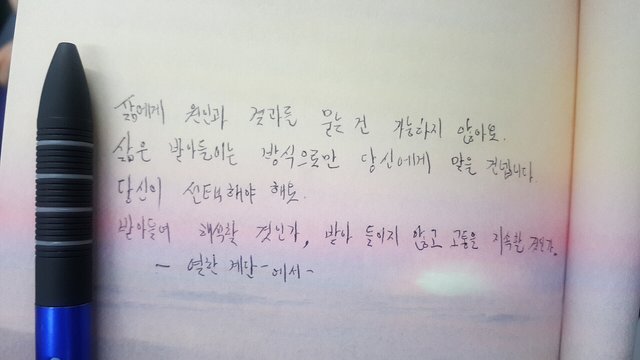 삶에게 원인과 결과를 묻는 건 가능하지 않아요.
삶은 받아들이는 방식으로만 당신에게 말을 건넵니다.
당신이 선택해야 해요.
받아들여 해석할 것인가, 받아 들이지 않고 고통을 지속할 것인가.
- 열한 계단 - 에서 -